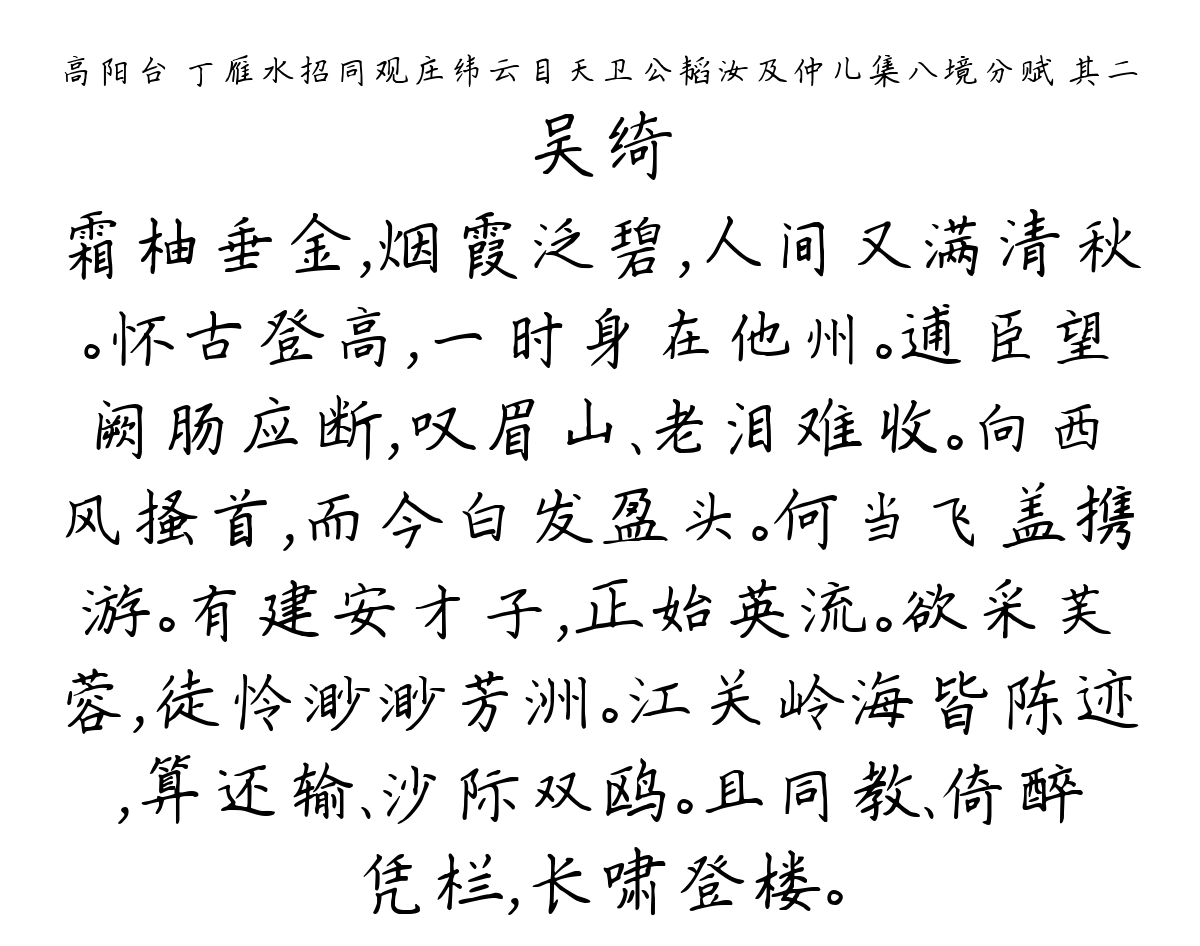 高阳台 丁雁水招同观庄纬云目天卫公韬汝及仲儿集八境分赋 其二
吴绮
霜柚垂金,烟霞泛碧,人间又满清秋
。怀古登高,一时身在他州。逋臣望
阙肠应断,叹眉山、老泪难收。向西
风搔首,而今白发盈头。何当飞盖携
游。有建安才子,正始英流。欲采芙
蓉,徒怜渺渺芳洲。江关岭海皆陈迹
,算还输、沙际双鸥。且同教、倚醉
凭栏,长啸登楼。